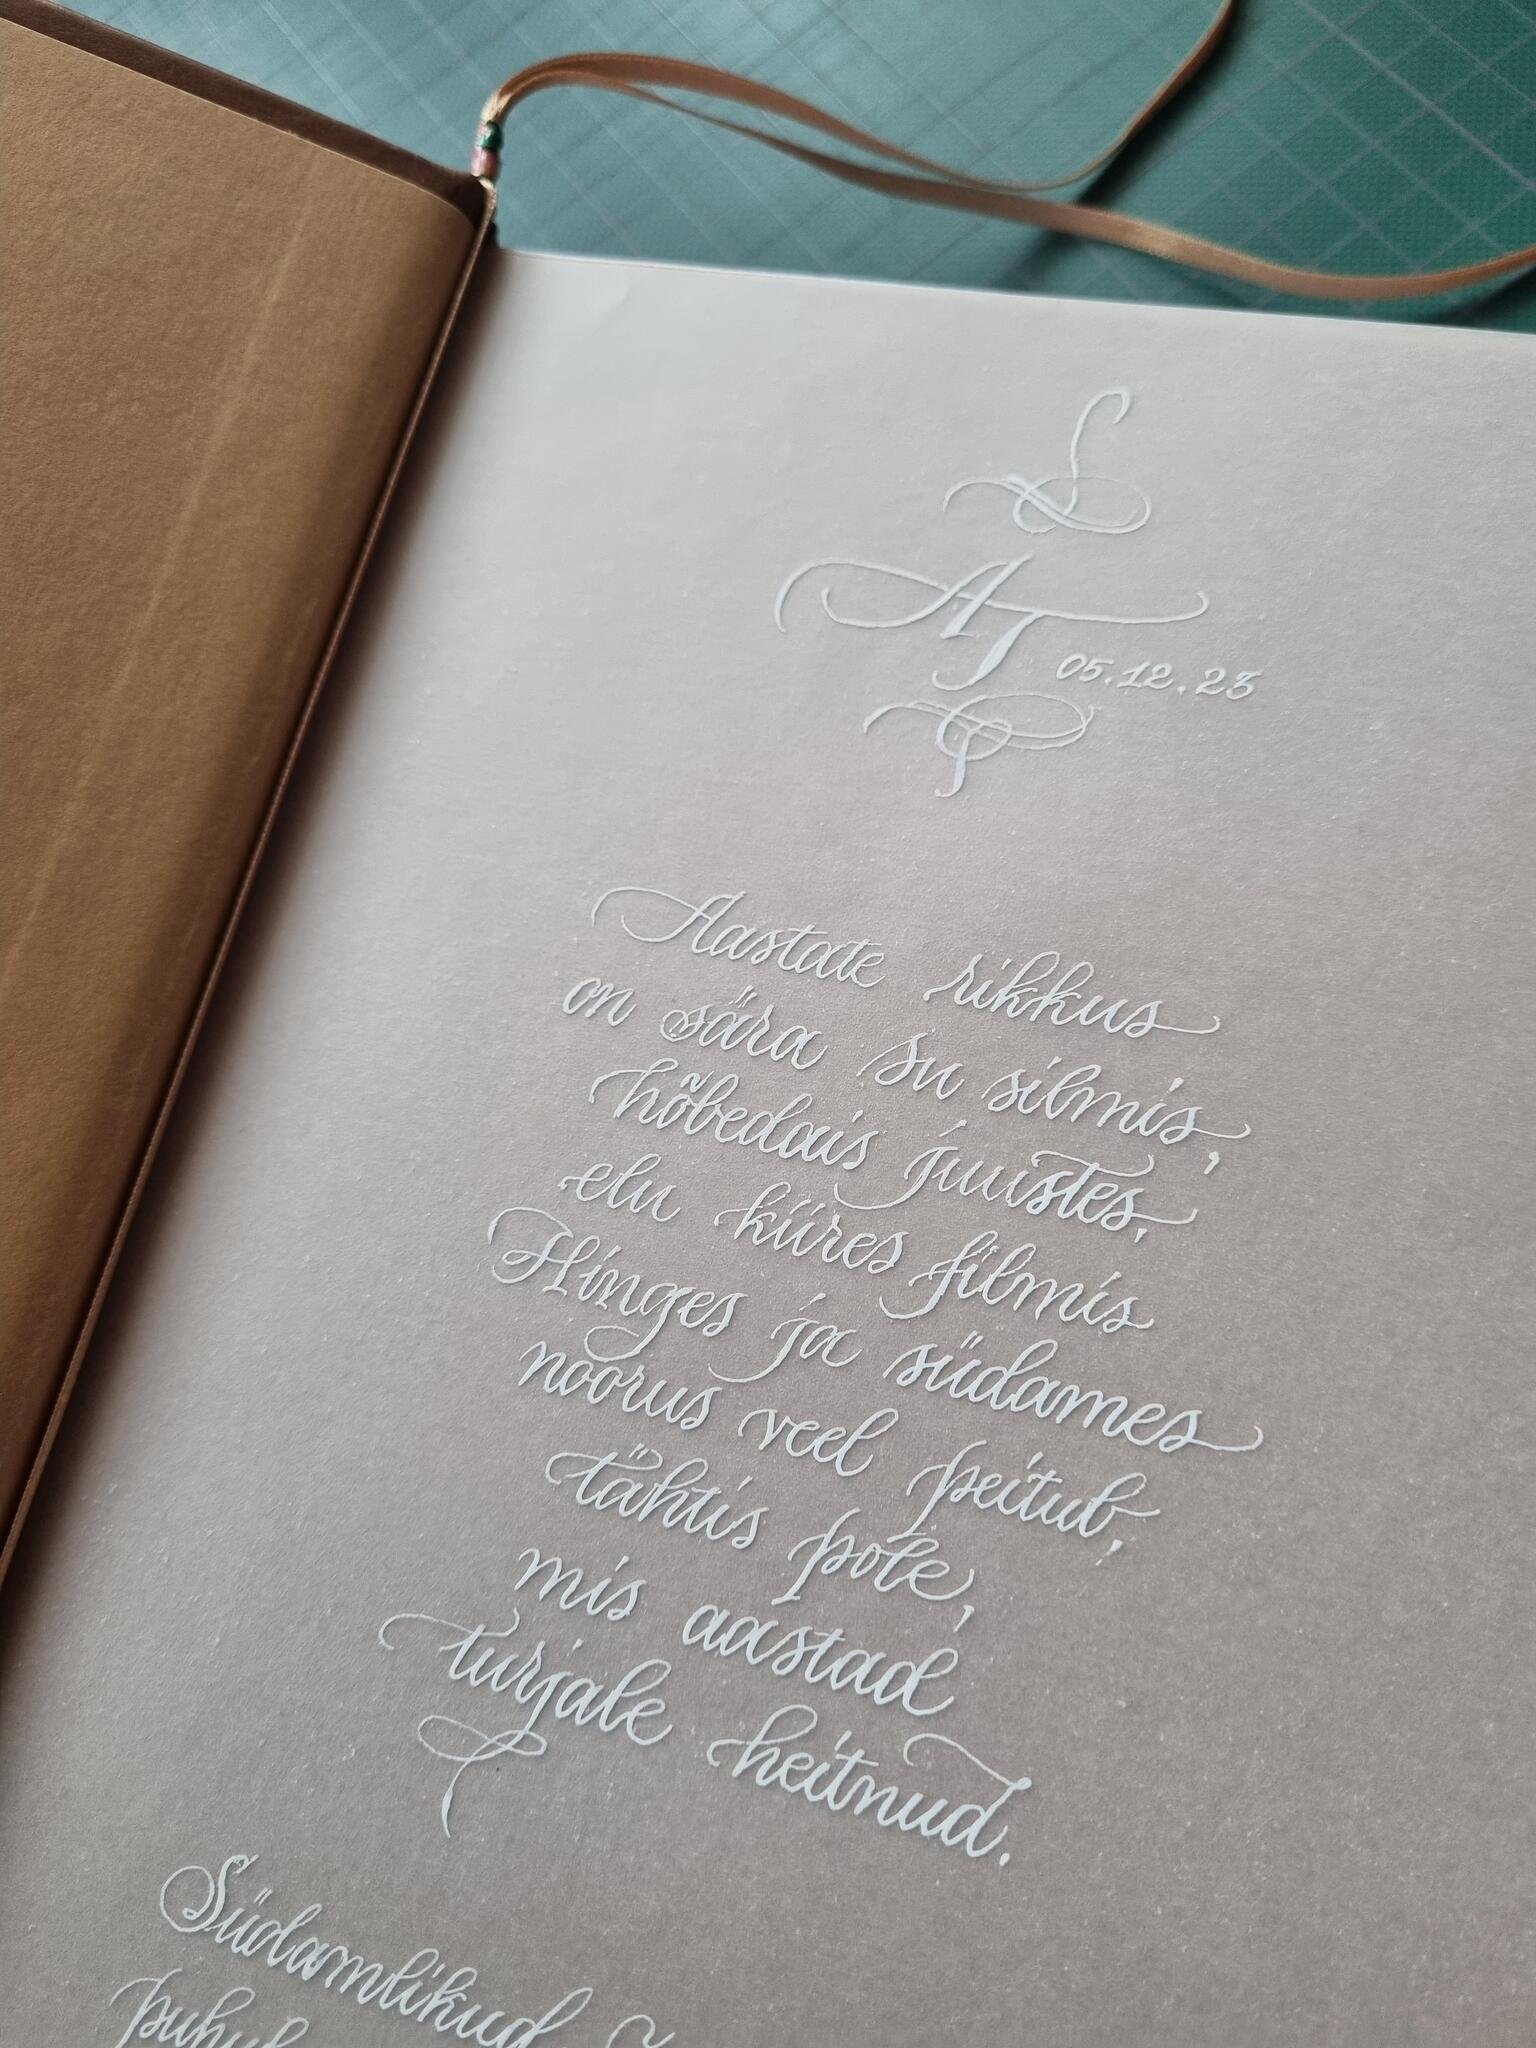 AT 05.12.23
Aastate rikkus
on sära su silmis,
hõbedais juustes,
elu kiires filmis
Hinges ja südames
noorus veel peitub,
tähtis pole,
mis aastad
turjale heitnud.
Südamlikud